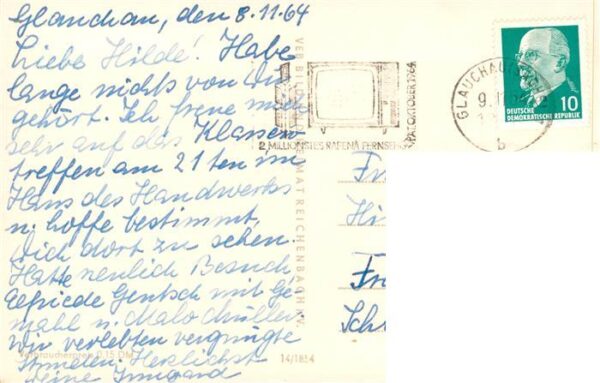 Glauchau, den 8.11.64
Liebe Hilde! Habe
lange nichts von Dir
gehört. Ich freue mich
sehr auf das Klassen
treffen am 21ten im
Haus des Handwerks
u. hoffe bestimmt,
Dich dort zu sehen.
Hatte neulich Besuch,
Elfriede Gentsch mit Ge-
mahl u. Malo Müller.
Wir verlebten vergnügte
Stunden. Herzlichst
Deine Irmgard
Verbraucherpreis 0,15 DM
14/1854
HEIMAT REICHENBACH I. V.
2 MILLIONSTES RAFENA FERNSEH
OKTOBER 1964
GLAUCHAU
9.
b
10
DEUTSCHE
DEMOKRATISCHE REPUBLIK
Fr
Hi
Fr
Sch